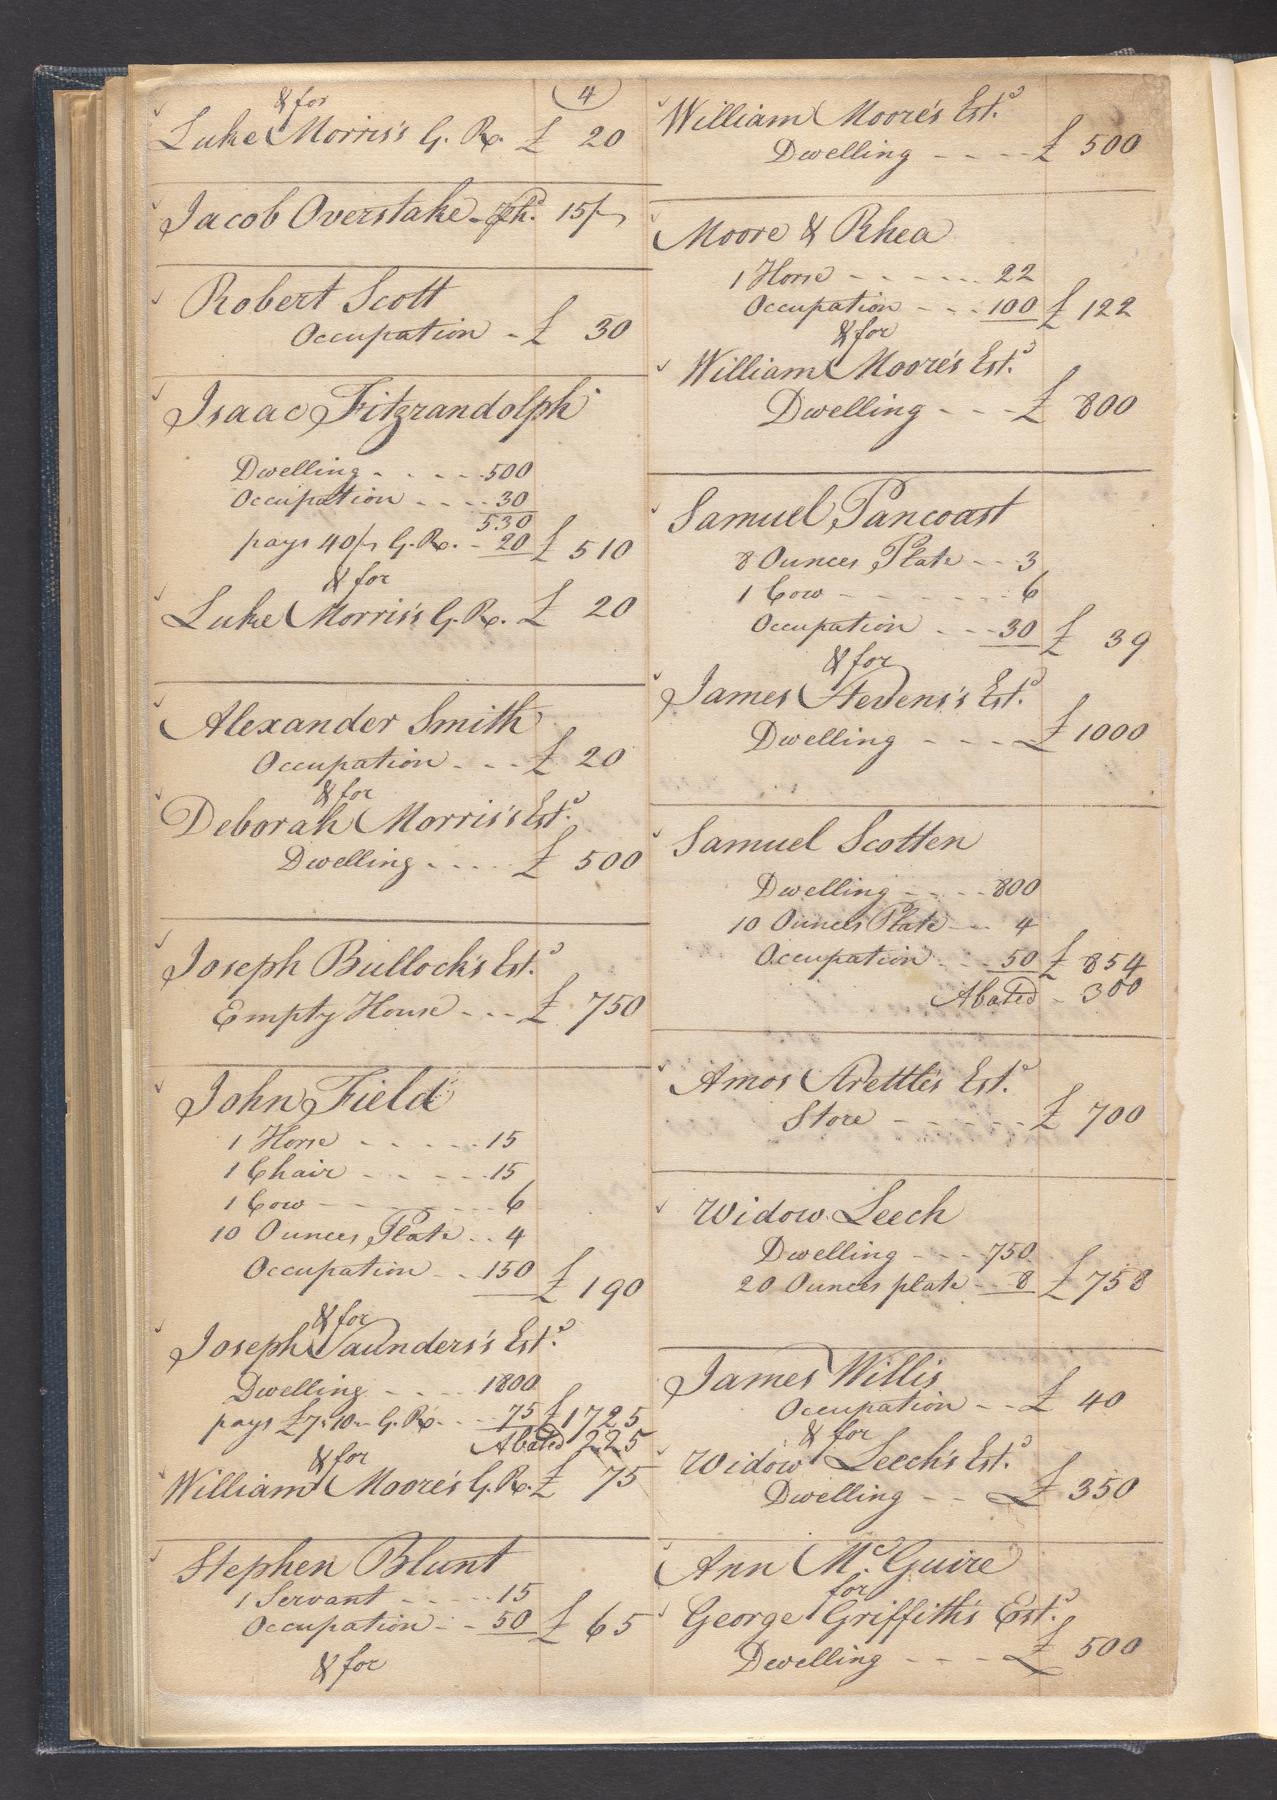 4
& for
Luke Morris's G. Rt. £ 20
Jacob Overstake - ph.d 15/-
Robert Scott
Occupation - £ 30
Isaac Fitzrandolph
Dwelling - - - - 500
Occupation - - - 30
530
pays 40/- G. Rt. - 20 £ 510
& for
Luke Morris's G. Rt. £ 20
Alexander Smith
Occupation - - - £ 20
& for
Deborah Morris's Est.d
Dwelling - - - - £ 500
Joseph Bullock's Est.d
Empty House - - - £ 750
John Field
1 Horse - - - - - 15
1 Chair - - - - - 15
1 Cow - - - - - 6
10 Ounces Plate - - 4
Occupation - - 150 £ 190
& for
Joseph Saunders's Est.d
Dwelling - - - - 1800
pays £7.10 - G. Rt. - - - 75 £ 1725
Abated 225
& for
William Moore's G. Rt. £ 75
Stephen Blunt
1 Servant - - - - 15
Occupation - - 50 £ 65
& for
William Moore's Est.d
Dwelling - - - - £ 500
Moore & Rhea
1 Horse - - - - - 22
Occupation - - - 100 £ 122
& for
William Moore's Est.d
Dwelling - - - £ 800
Samuel Pancoast
8 Ounces Plate - - 3
1 Cow - - - - - - 6
Occupation - - - 30 £ 39
& for
James Stevens's Est.d
Dwelling - - - £ 1000
Samuel Scotten
Dwelling - - - - 800
10 Ounces Plate - - 4
Occupation - - - 50 £ 854
Abated - 300
Amos Strettle's Est.d
Store - - - - - - £ 700
Widow Leech
Dwelling - - - 750
20 Ounces plate - - 8 £ 758
James Willis
Occupation - - £ 40
& for
Widow Leech's Est.d
Dwelling - - £ 350
Ann Mc. Guire
for
George Griffith's Est.d
Dwelling - - - £ 500